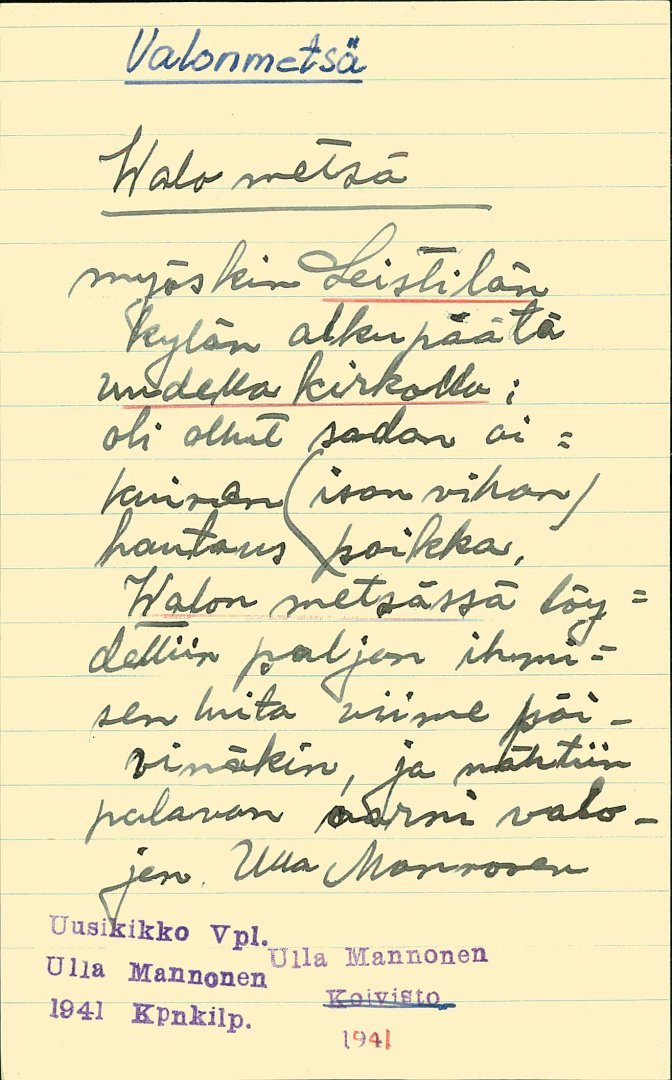 Valonmetsä
Walo metsä
myöskin Leistilän
kylän alkupäätä
uudella kirkolla;
oli ollut sodan ai=
kuinen (ison vihan)
hautaus paikka,
Walon metsässä löy=
dettiin paljon ihmi=
sen luita viime päi-
vinäkin, ja nähtiin
palavan aarni valo-
jen. Ulla Mannonen
Uusikikko Vpl.
Ulla Mannonen
1941 Kpnkilp.
Ulla Mannonen
Koivisto
1941